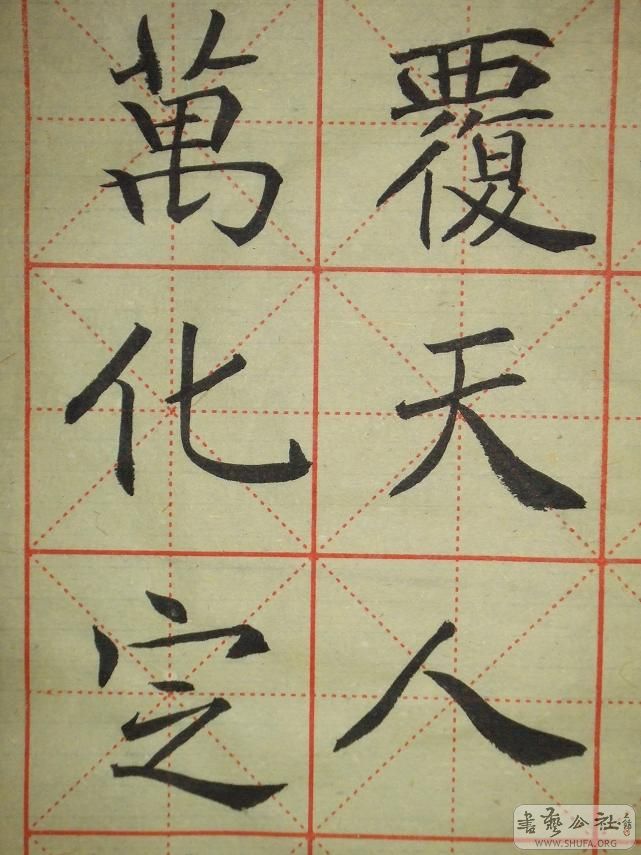 覆天人
萬化定
書藝公社
WWW.SHUFA.ORG